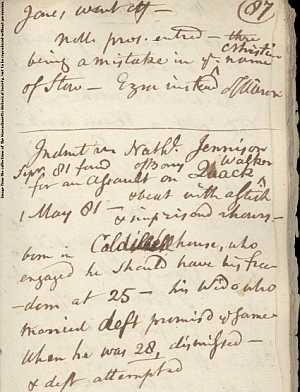 Jones went off —
(87
nolle pros. entred — there
being a mistake in ye. Christin name
of Stow — Ezra instead of Aaron
Indictmt an Nathl. Jennison
Sepr. 81 found of Bony Walker
for an Assault on Quack
1 May 81 — & beat with a stick
& imprisond 2 hours —
born in Caldwells house, who
engaged he should have his free
-dom at 25 — his Widow who
married deft promisd ye same
When he was 28, dismissed —
& deft attempted